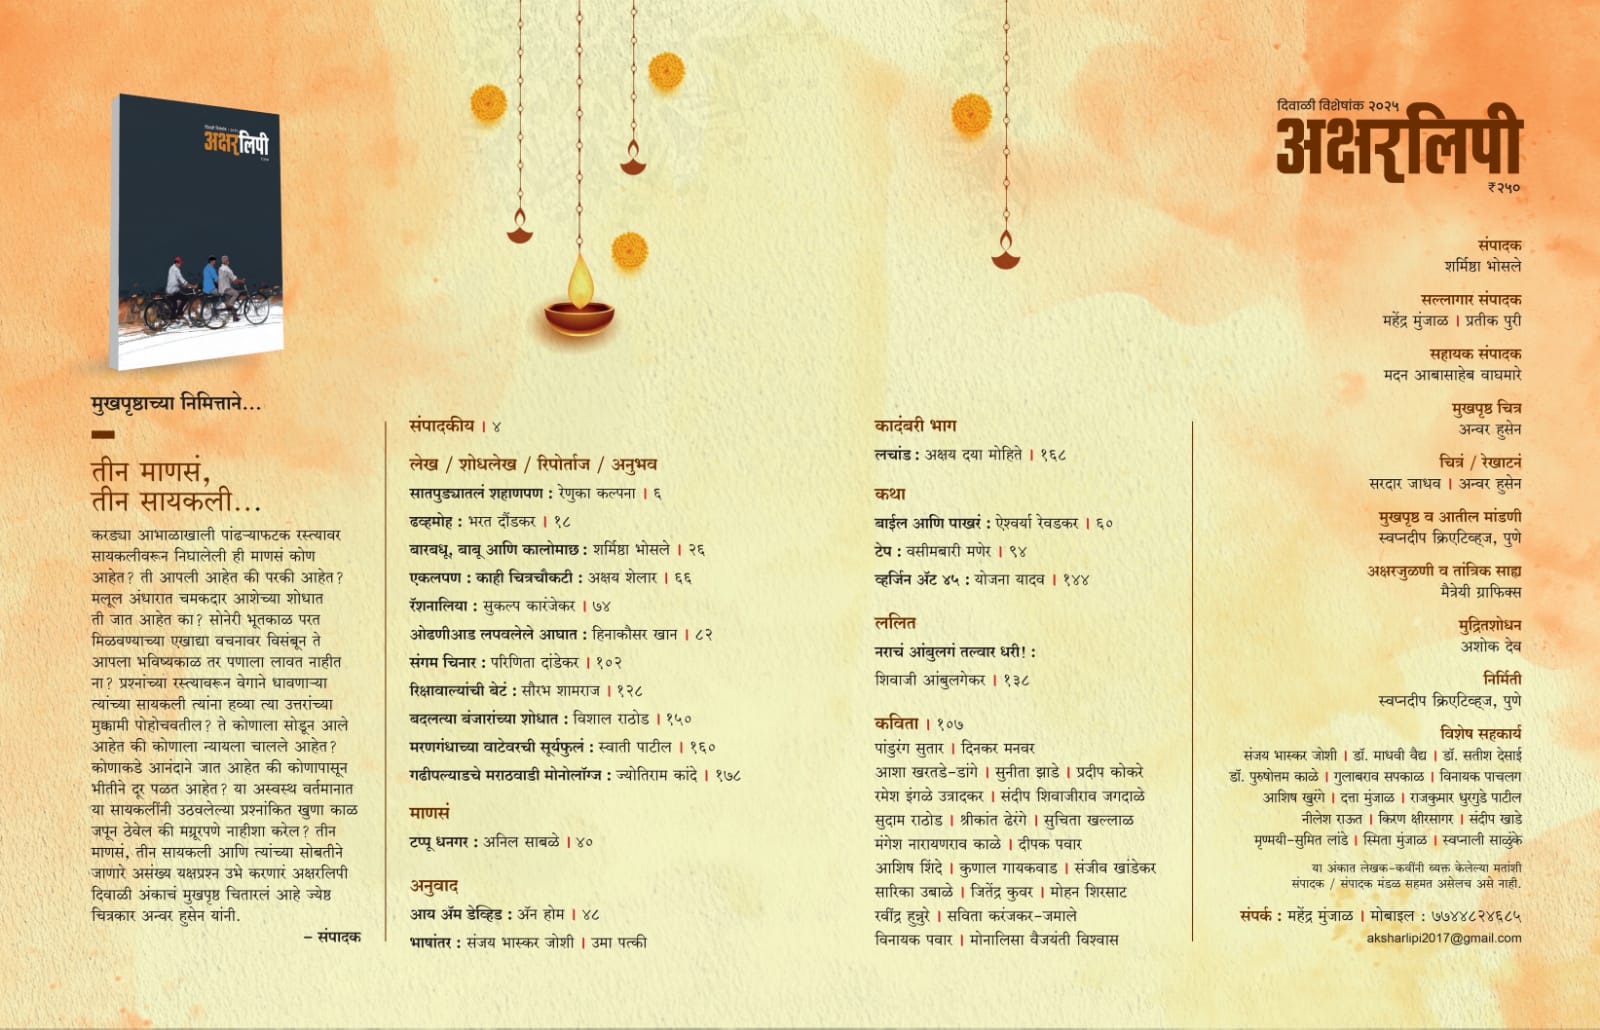 दिवाळी विशेषांक २०२५
अक्षरलिपी
मुखपृष्ठाच्या निमित्ताने...
तीन माणसं,
तीन सायकली...
करड्या आभाळाखाली पांढऱ्याफटक रस्त्यावर
सायकलीवरून निघालेली ही माणसं कोण
आहेत? ती आपली आहेत की परकी आहेत?
मलूल अंधारात चमकदार आशेच्या शोधात
ती जात आहेत का? सोनेरी भूतकाळ परत
मिळवण्याच्या एखाद्या वचनावर विसंबून ते
आपला भविष्यकाळ तर पणाला लावत नाहीत
ना? प्रश्नांच्या रस्त्यावरून वेगाने धावणाऱ्या
त्यांच्या सायकली त्यांना हव्या त्या उत्तरांच्या
मुक्कामी पोहोचवतील? ते कोणाला सोडून आले
आहेत की कोणाला न्यायला चालले आहेत?
कोणाकडे आनंदाने जात आहेत की कोणापासून
भीतीने दूर पळत आहेत? या अस्वस्थ वर्तमानात
या सायकलींनी उठवलेल्या प्रश्नांकित खुणा काळ
जपून ठेवेल की मग्रूरपणे नाहीशा करेल? तीन
माणसं, तीन सायकली आणि त्यांच्या सोबतीने
जाणारे असंख्य यक्षप्रश्न उभे करणारं अक्षरलिपी
दिवाळी अंकाचं मुखपृष्ठ चितारलं आहे ज्येष्ठ
चित्रकार अन्वर हुसेन यांनी.
– संपादक
संपादकीय । ४
लेख / शोधलेख / रिपोर्ताज / अनुभव
सातपुड्यातलं शहाणपण : रेणुका कल्पना । ६
ढव्हमोह : भरत दौंडकर । १८
बारबधू, बाबू आणि कालोमाछ : शर्मिष्ठा भोसले । २६
एकलपण : काही चित्रचौकटी : अक्षय शेलार । ६६
रॅशनालिया : सुकल्प कारंजेकर । ७४
ओढणीआड लपवलेले आघात : हिनाकौसर खान । ८२
संगम चिनार : परिणिता दांडेकर । १०२
रिक्षावाल्यांची बेटं : सौरभ शामराज । १२८
बदलत्या बंजारांच्या शोधात : विशाल राठोड । १५०
मरणगंधाच्या वाटेवरची सूर्यफुलं : स्वाती पाटील । १६०
गढीपल्याडचे मराठवाडी मोनोलॉग्ज : ज्योतिराम कांदे । १७८
माणसं
टप्पू धनगर : अनिल साबळे । ४०
अनुवाद
आय ॲम डेव्हिड : ॲन होम । ४८
भाषांतर : संजय भास्कर जोशी । उमा पत्की
कादंबरी भाग
लचांड : अक्षय दया मोहिते । १६८
कथा
बाईल आणि पाखरं : ऐश्वर्या रेवडकर । ६०
टेप : वसीमबारी मणेर । ९४
व्हर्जिन ॲट ४५ : योजना यादव । १४४
ललित
नराचं आंबुलगं तल्वार धरी! :
शिवाजी आंबुलगेकर । १३८
कविता । १०७
पांडुरंग सुतार । दिनकर मनवर
आशा खरतडे-डांगे । सुनीता झाडे । प्रदीप कोकरे
रमेश इंगळे उत्रादकर । संदीप शिवाजीराव जगदाळे
सुदाम राठोड । श्रीकांत ढेरंगे । सुचिता खल्लाळ
मंगेश नारायणराव काळे । दीपक पवार
आशिष शिंदे । कुणाल गायकवाड । संजीव खांडेकर
सारिका उबाळे । जितेंद्र कुवर । मोहन शिरसाट
रवींद्र हुन्नुरे । सविता करंजकर-जमाले
विनायक पवार । मोनालिसा वैजयंती विश्वास
दिवाळी विशेषांक २०२५
अक्षरलिपी
₹२५०
संपादक
शर्मिष्ठा भोसले
सल्लागार संपादक
महेंद्र मुंजाळ । प्रतीक पुरी
सहायक संपादक
मदन आबासाहेब वाघमारे
मुखपृष्ठ चित्र
अन्वर हुसेन
चित्रं / रेखाटनं
सरदार जाधव । अन्वर हुसेन
मुखपृष्ठ व आतील मांडणी
स्वप्नदीप क्रिएटिव्ह्ज, पुणे
अक्षरजुळणी व तांत्रिक साह्य
मैत्रेयी ग्राफिक्स
मुद्रितशोधन
अशोक देव
निर्मिती
स्वप्नदीप क्रिएटिव्ह्ज, पुणे
विशेष सहकार्य
संजय भास्कर जोशी । डॉ. माधवी वैद्य । डॉ. सतीश देसाई
डॉ. पुरुषोत्तम काळे । गुलाबराव सपकाळ । विनायक पाचलग
आशिष खुरंगे । दत्ता मुंजाळ । राजकुमार धुरगुडे पाटील
नीलेश राऊत । किरण क्षीरसागर । संदीप खाडे
मृण्मयी-सुमित लांडे । स्मिता मुंजाळ । स्वप्नाली साळुंके
या अंकात लेखक-कवींनी व्यक्त केलेल्या मतांशी
संपादक / संपादक मंडळ सहमत असेलच असे नाही.
संपर्क : महेंद्र मुंजाळ । मोबाइल : ७७४४८२४६८५
aksharlipi2017@gmail.com